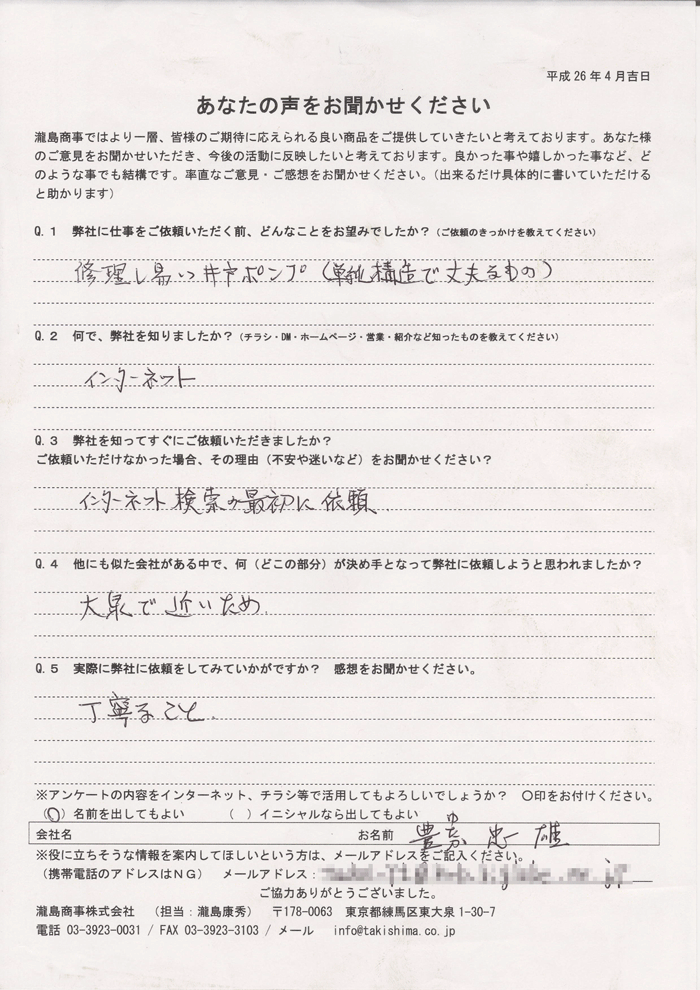 平成26年4月吉日
あなたの声をお聞かせください
瀧島商事ではより一層、皆様のご期待に応えられる良い商品をご提供していきたいと考えております。あなた様
のご意見をお聞かせいただき、今後の活動に反映したいと考えております。良かった事や嬉しかった事など、ど
のような事でも結構です。率直なご意見・ご感想をお聞かせください。（出来るだけ具体的に書いていただける
と助かります）
Q.1 弊社に仕事をご依頼いただく前、どんなことをお望みでしたか？（ご依頼のきっかけを教えてください）
修理し易い井戸ポンプ（単純構造で丈夫なもの）
Q.2 何で、弊社を知りましたか？（チラシ・DM・ホームページ・営業・紹介など知ったものを教えてください）
インターネット
Q.3 弊社を知ってすぐにご依頼いただきましたか？
ご依頼いただけなかった場合、その理由（不安や迷いなど）をお聞かせください？
インターネット検索の最初に依頼.
Q.4 他にも似た会社がある中で、何（どこの部分）が決め手となって弊社に依頼しようと思われましたか？
大泉で近いため.
Q.5 実際に弊社に依頼をしてみていかがですか？ 感想をお聞かせください。
丁寧なこと.
※アンケートの内容をインターネット、チラシ等で活用してもよろしいでしょうか？ 〇印をお付けください。
（〇）名前を出してもよい （ ）イニシャルなら出してもよい
会社名 お名前 忠雄
※役に立ちそうな情報を案内してほしいという方は、メールアドレスをご記入ください。
（携帯電話のアドレスはＮＧ） メールアドレス：
ご協力ありがとうございました。
瀧島商事株式会社 （担当：瀧島康秀） 〒178-0063 東京都練馬区東大泉1-30-7
電話 03-3923-0031 / FAX 03-3923-3103 / メール info@takishima.co.jp